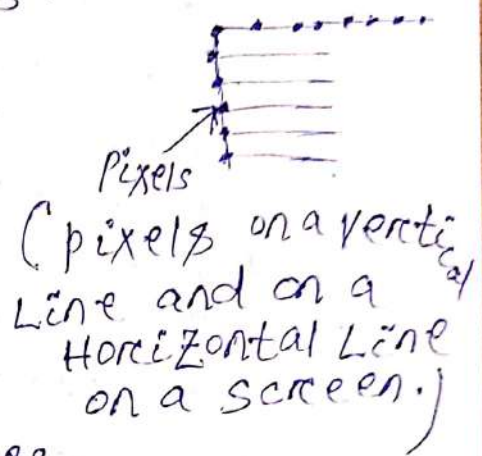 Pixels
(pixels on a vertical
Line and on a
Horizontal Line
on a screen.)